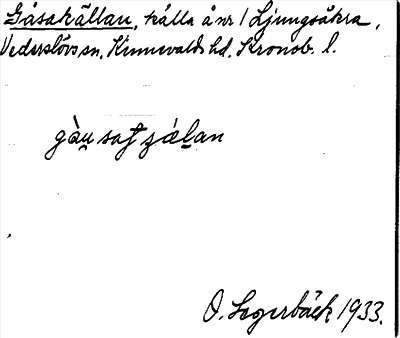 Gåsakällan, källa å nr 1 Ljungsåkra,
Vederslövs sn, Kinnevalds hd. Kronob. l.
O. Segerbäck 1933.